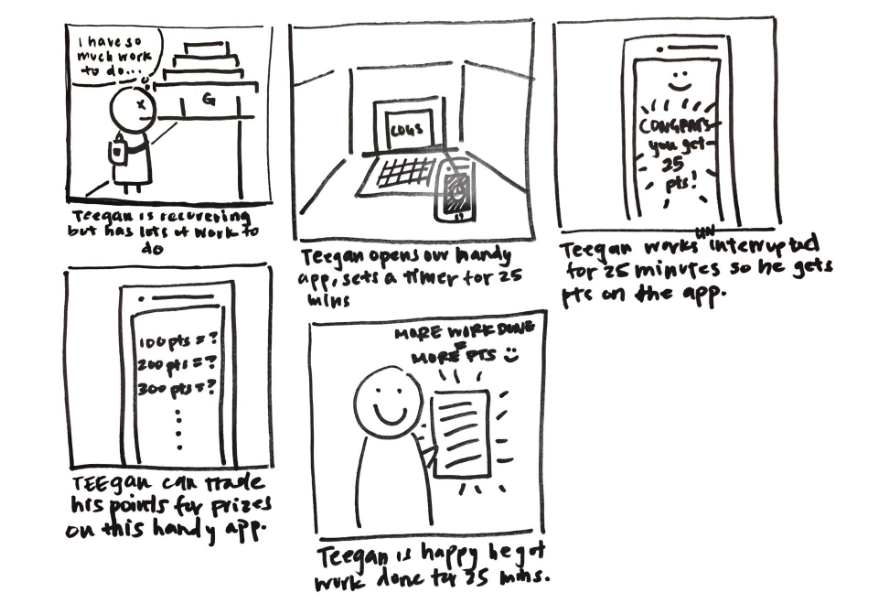 I have so
much work
to do...
G
Teegan is recovering
but has lots of work to
do
COGS
Teegan opens our handy
app, sets a timer for 25
mins
CONGRATS
you get
25
pts!
Teegan works uninterrupted
for 25 minutes so he gets
pts on the app.
100 pts = ?
200 pts = ?
300 pts = ?
TEEgan can trade
his points for prizes
on this handy app.
MORE WORK DONE
=
MORE PTS
Teegan is happy he got
work done for 25 mins.